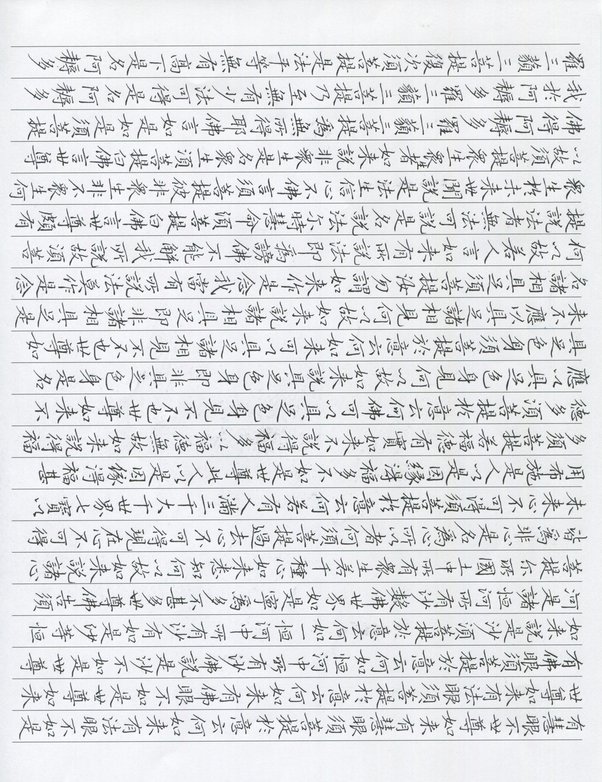 有慧眼不世尊如来有慧眼須菩提於意云何如来有法眼不如是
世尊如来有法眼須菩提於意云何如来有佛眼不如是世尊如来
有佛眼須菩提於意云何如恒河中所有沙佛說是沙不如是世尊
如来說是沙須菩提於意云何如一恒河中所有沙有如是沙等恒
河是諸恒河所有沙數佛世界如是寧為多不甚多世尊佛告須
菩提尔所國土中所有衆生若干種心如来悉知何以故如来說諸心
皆為非心是名為心所以者何須菩提過去心不可得現在心不可得
未来心不可得須菩提於意云何若有人滿三千大千世界七寶以
用布施是人以是因緣得福多不如是世尊此人以是因緣得福甚
多須菩提若福德有實如来不說得福德多以福德無故如来說得福
德多須菩提於意云何佛可以具足色身見不不也世尊如来不
應以具足色身見何以故如来說具足色身即非具足色身是名
具足色身須菩提於意云何如来可以具足諸相見不不也世尊如
来不應以具足諸相見何以故如来說諸相具足即非具足是
名諸相具足須菩提汝勿謂如来作是念我當有所說法莫作是念
何以故若人言如来有所說法即為謗佛不能解我所說故須菩
提說法者無法可說是名說法尔時慧命須菩提白佛言世尊頗有
衆生於未来世聞說是法生信心不佛言須菩提彼非衆生非不衆生何
以故須菩提衆生衆生者如来說非衆生是名衆生須菩提白佛言世尊
佛得阿耨多羅三藐三菩提為無所得耶佛言如是如是須菩提
我於阿耨多羅三藐三菩提乃至無有少法可得是名阿耨多
羅三藐三菩提復次須菩提是法平等無有高下是名阿耨多